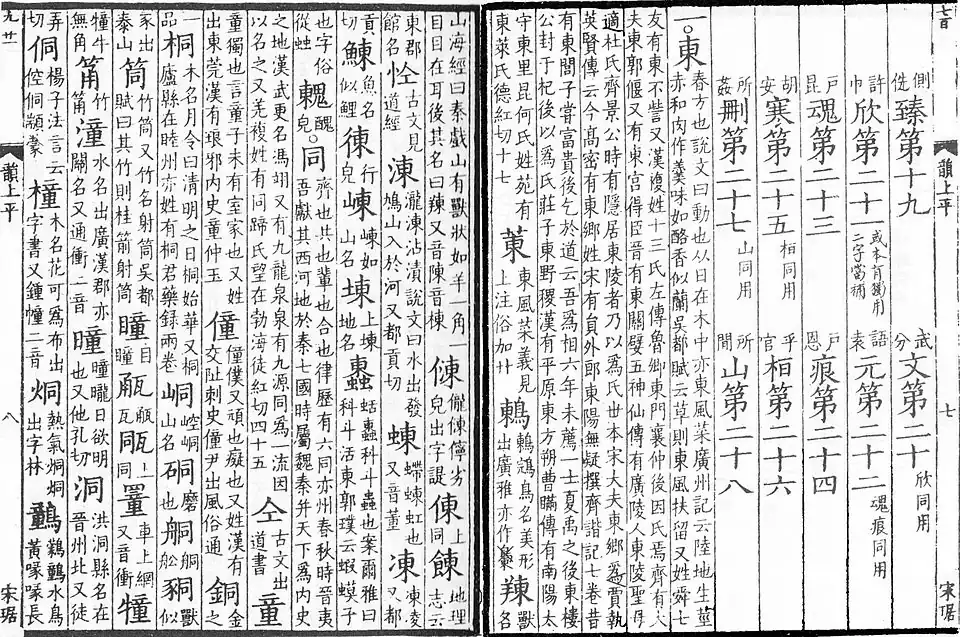 七百
韻上平
七
宋琚
側侁臻第十九 武分文第二十欣同用
許巾欣第二十一或本有獨用二字當補 語袁元第二十二魂痕同用
戶昆魂第二十三 戶恩痕第二十四
胡安寒第二十五桓同用 乎官桓第二十六
所姦刪第二十七山同用 所閒山第二十八
一。東春方也說文曰動也从日在木中亦東風菜廣州記云陸地生莖赤和肉作羹味如酪香似蘭吳都賦云草則東風扶留又姓舜七
友有東不訾又漢複姓十三氏左傳魯卿東門襄仲後因氏焉齊有大夫東郭偃又有東宮得臣晉有東關嬖五神仙傳有廣陵人東陵聖母
適杜氏齊景公時有隱居東陵者乃以爲氏世本宋大夫東鄉爲賈執英賢傳云今高密有東鄉姓宋有員外郎東陽無疑撰齊諧記七卷昔
有東閭子嘗富貴後乞於道云吾爲相六年未薦一士夏禹之後東樓公封于杞後以爲氏莊子東野稷漢有平原東方朔曹瞞傳有南陽太
守東里昆何氏姓苑有東萊氏德紅切十七 菄東風菜義見上注俗加艹 鶇鶇鵍鳥名美形出廣雅亦作 䍶獸名
山海經曰秦戲山有獸狀如羊一角一目目在耳後其名曰䍶又音陳音棟 倲儱倲儜劣皃出字諟 倲上同 餗地理志云
東郡館名 古文見道經 涷瀧涷沾漬說文曰水出發鳩山入於河又都貢切 蝀螮蝀虹也又音董 凍凍凌又都
貢切 鯟魚名似鯉 徚行皃 崠崠如山名 埬上埬地名 𧓕蛞𧓕科斗蟲也案爾雅曰科斗活東郭璞云蝦蟆子
也字俗從䖵 䰤醜皃。同齊也共也輩也合也律歷有六同亦州春秋時晉夷吾獻其西河地於秦七國時屬魏秦并天下爲內史
之地漢武更名馮翊又有九龍泉泉有九源同爲一流因以名之又羌複姓有同蹄氏望在勃海徒紅切四十五 仝古文出道書 童
童獨也言童子未有室家也又姓出東莞漢有琅邪內史童仲玉 僮僮僕又頑也癡也又姓漢有交阯刺史僮尹出風俗通 銅金之
一品 桐木名月令曰清明之日桐始華又桐廬縣在睦州亦姓有桐君藥録兩卷 峒崆峒山名 硐磨也 𦨴𦨴舩 𧳆獸似
豕出泰山 筒竹筒又竹名射筒吳都賦曰其竹則桂箭射筒 瞳目瞳 㼧㼧瓦 𤭁上同 罿車上網又音衝 犝
犝牛無角 筩竹筩 潼水名出廣漢郡亦關名又通衝二音 曈曈曨日欲明也又他孔切 洞洪洞縣名在晉州北又徒
弄切 侗楊子法言云倥侗顓蒙 橦木名花可爲布出字書又鍾幢二音 烔熱氣烔烔出字林 水鳥黃喙喙長
九廿一
韻上平
八
宋琚